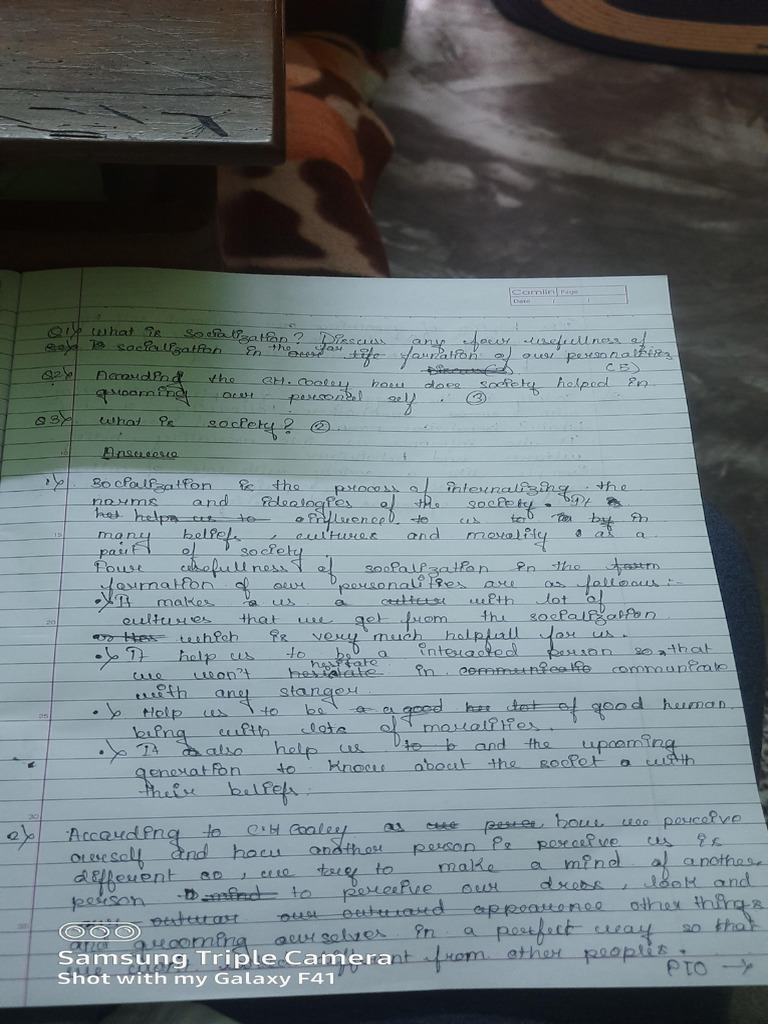 Camlin Page
Date / /
Q1) What is socialization? Discuss any four usefullness of
socialization in the formation of our personalities
(5)
Q2) According the C.H. Cooley how does society helped in
grooming our personel self. (3)
Q3) What is society? (2)
Answere
1) Socialization is the process of internalizing the
norms and ideologies of the society. It
influence us in
many beliefs, cultures and morality as a
part of society.
Four usefullness of socialization in the
formation of our personalities are as follows:-
•) It makes us with lot of
cultures that we get from the socialization
which is very much helpfull for us.
•) It help us to be a interacted person so, that
we won't hesitate in communicate
with any stanger.
•) Help us to be good human
being with lots of moralities.
•) It also help us and the upcoming
generation to know about the societ with
their beliefs.
2) According to C.H Cooley how we perceive
ourself and how another person is perceive us is
different so, we try to make a mind of another
person to perceive our dress, look and
appearence other things
and grooming ourselves in a perfect way so that
we different from other peoples.
PTO →
Samsung Triple Camera
Shot with my Galaxy F41